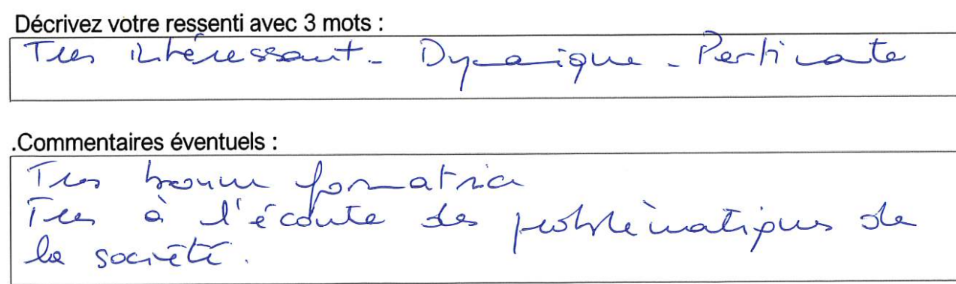 Décrivez votre ressenti avec 3 mots :
Très intéressant - Dynamique - Pertinante
.Commentaires éventuels :
Très bonne formatrice
Très à l'écoute des problèmatiques de
la société.